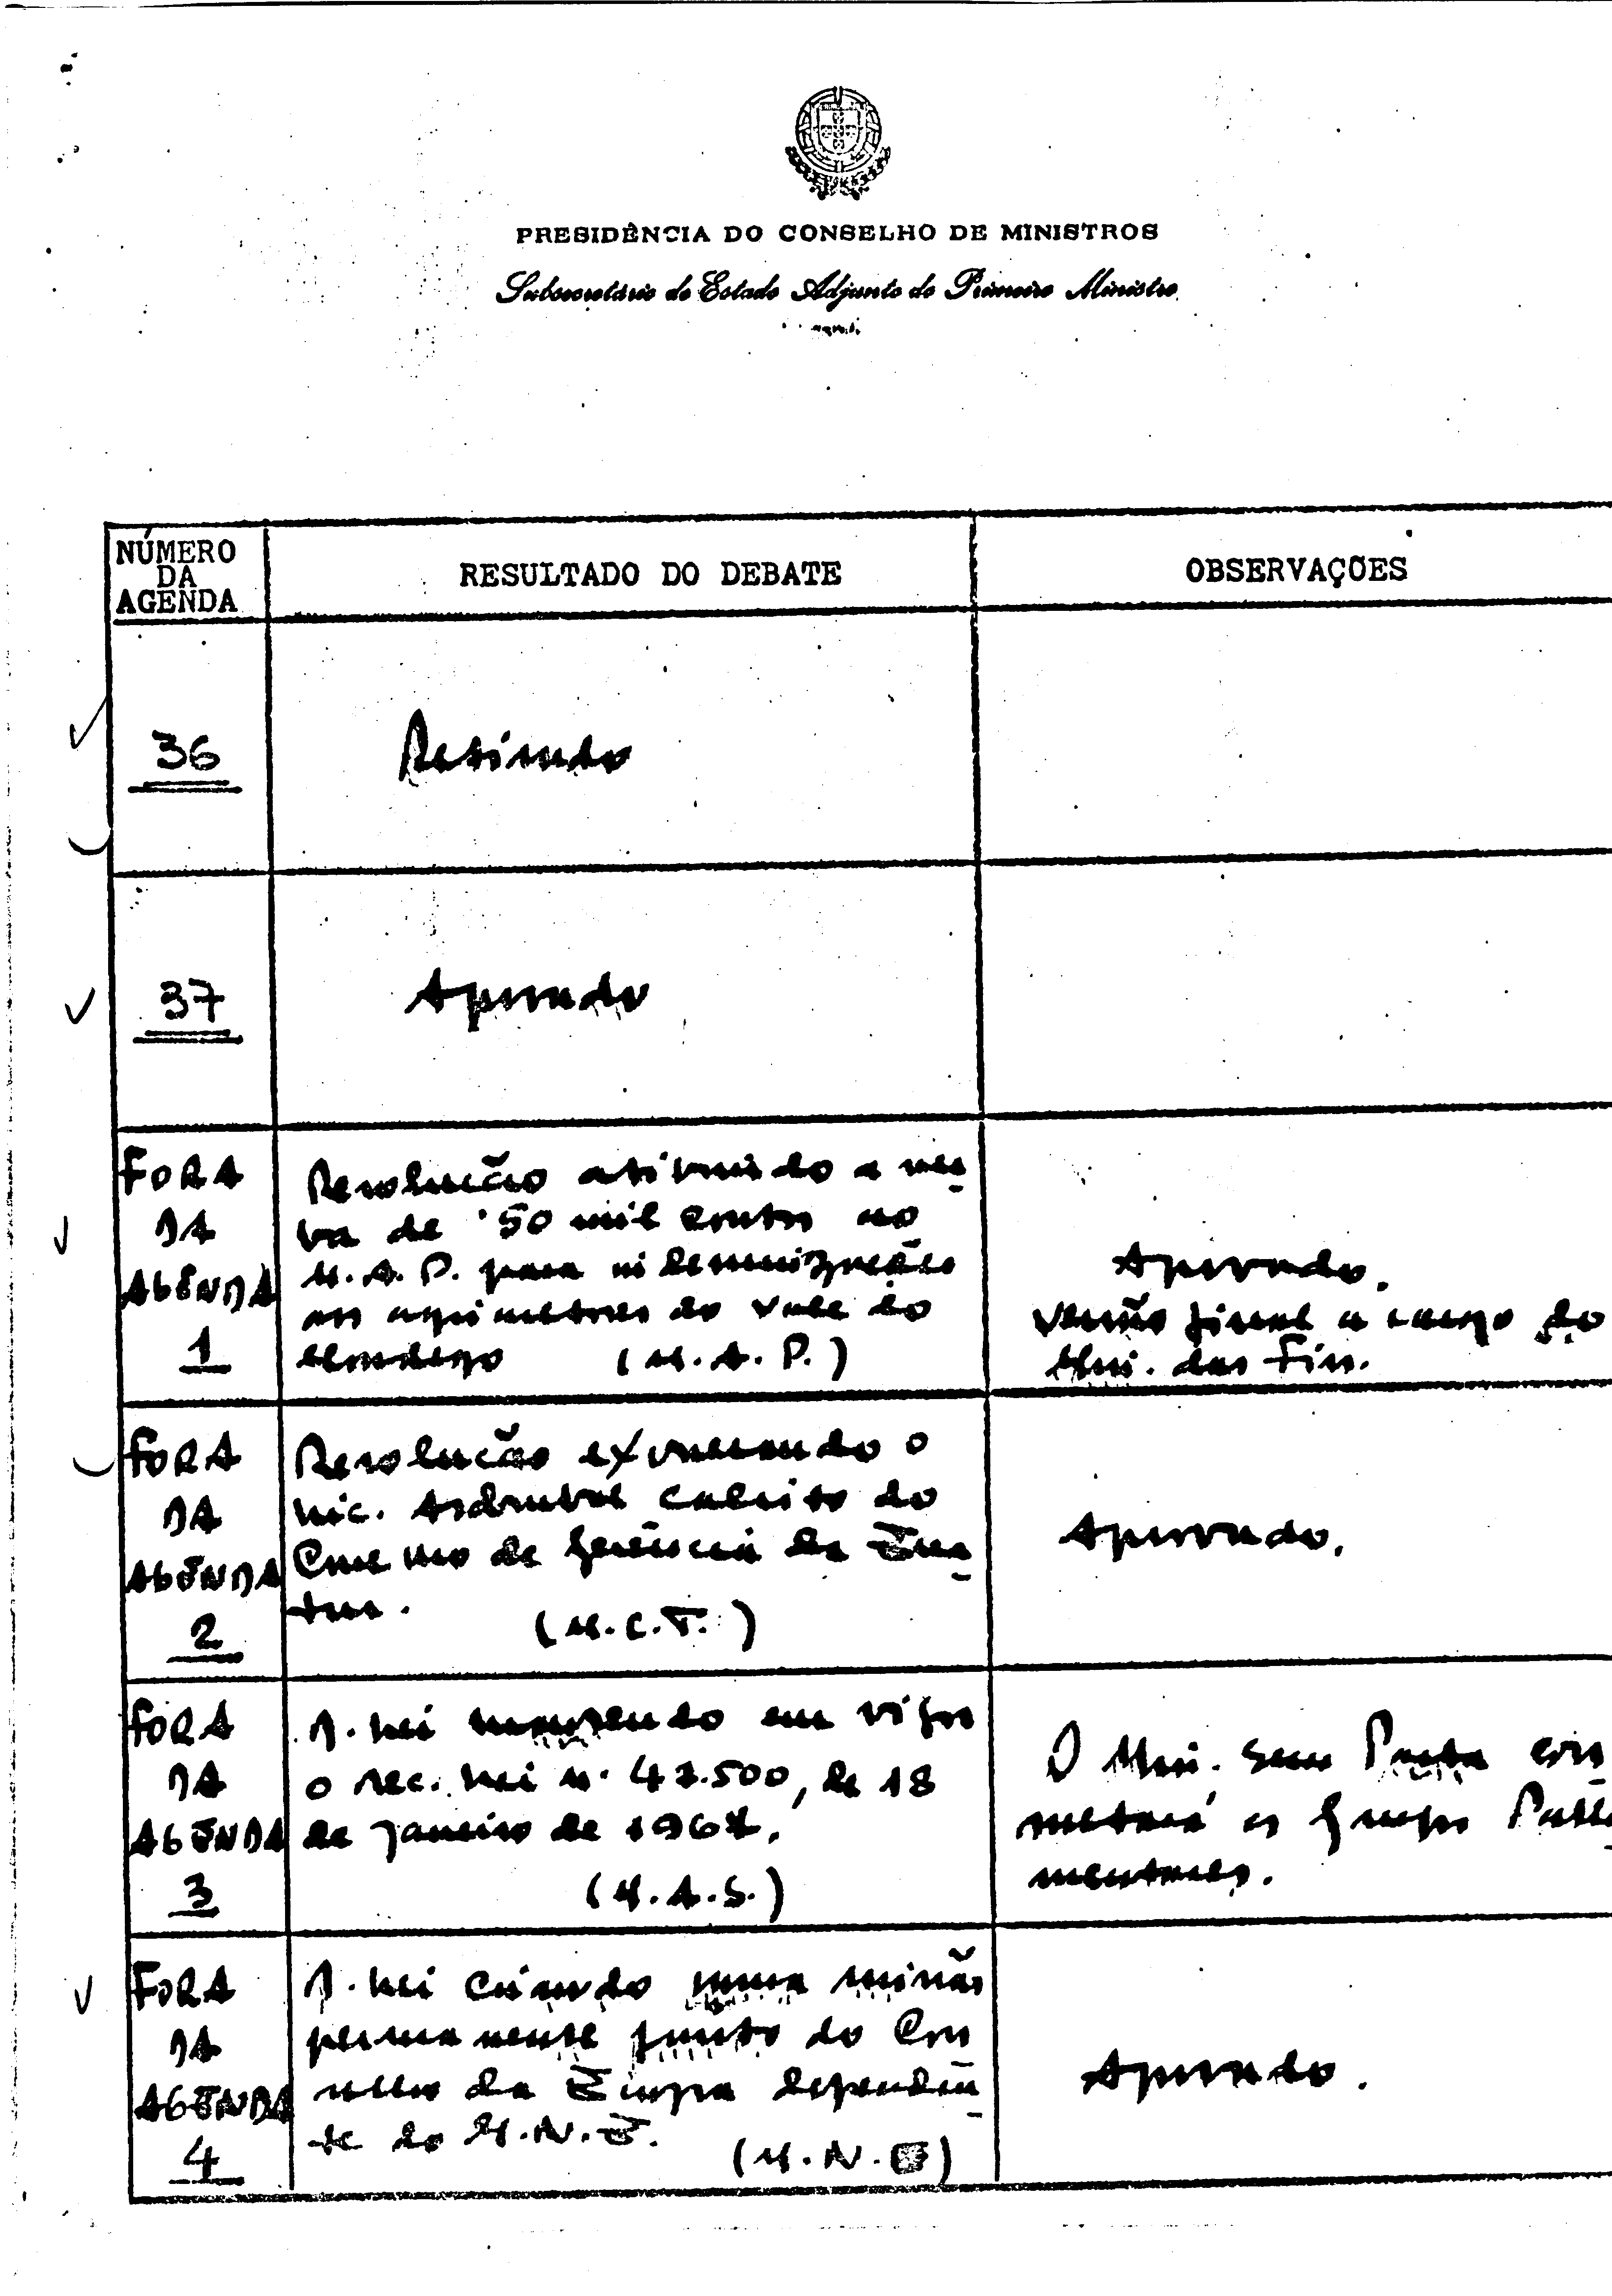 PRESIDÊNCIA DO CONSELHO DE MINISTROS
Subsecretário de Estado Adjunto do Primeiro Ministro
NÚMERO
DA
AGENDA
RESULTADO DO DEBATE
OBSERVAÇÕES
36
Retirado
37
Aprovado
FORA
DA
AGENDA
1
Resolução atribuindo a ver-
ba de 50 mil contos ao
M.A.P. para indemnizações
aos agricultores do Vale do
Mondego (M.A.P.)
Aprovado.
Versão final a cargo do
Min. das Fin.
FORA
DA
AGENDA
2
Resolução exonerando o
Lic. Asdrubal Calisto do
Conselho de Gerência da Ena-
tur. (M.C.T.)
Aprovado.
FORA
DA
AGENDA
3
D. Lei mantendo em vigor
o Dec. Lei n. 47.500, de 18
de Janeiro de 1967.
(M.A.S.)
O Min. Sem Pasta con-
metrá os Grupos Parla-
mentares.
FORA
DA
AGENDA
4
D. Lei criando uma missão
permanente junto do Con
selho da Europa dependen-
te do M.N.E. (M.N.E)
Aprovado.